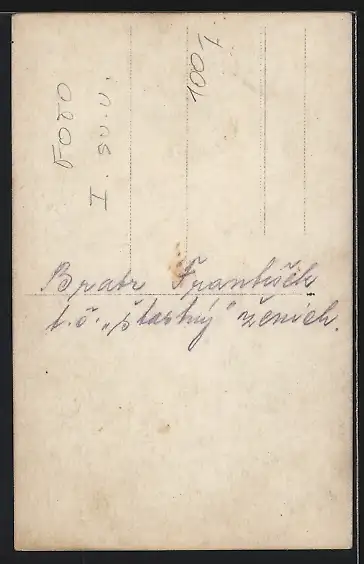 FOTO
I. sv.v.
100,-
Bratr František
t. č. „šťastný" ženich.